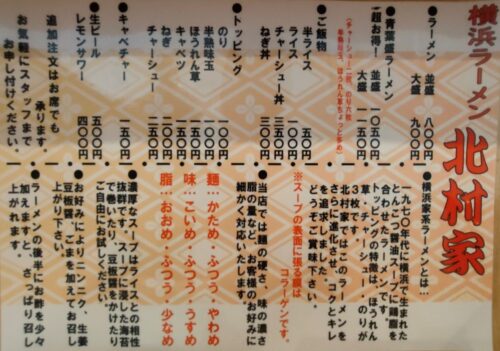 横浜ラーメン 北村家
●ラーメン 並盛 八〇〇円
大盛 九〇〇円
●青葉盛ラーメン
超お得! 並盛 一〇五〇円
大盛 一一五〇円
●ご飯物
半ライス 一〇〇円
ライス 一五〇円
チャーシュー丼 三五〇円
ねぎ丼 三五〇円
●トッピング
のり 一〇〇円
半熟味玉 一〇〇円
ほうれん草
キャベツ
ねぎ
チャーシュー
●キャベチャー 二五〇円
●生ビール 五〇〇円
レモンサワー 四〇〇円
追加注文はお席でも
承ります。
お気軽にスタッフまで
お申し付けください。
●横浜家系ラーメンとは…
一九七〇年代に横浜で生まれた
とんこつ醤油スープに鶏脂を
合わせたラーメンです。
トッピングの特徴は、ほうれん
草・チャーシュー・大きいのり
３枚です。
北村家ではこのラーメンを
さらに進化させ、コクとキレ
を追求しました。
どうぞご賞味下さい。
※スープの表面に張る膜は
コラーゲンです。
●当店では麺の硬さ、味の濃さ
脂の量など、お客様のお好みに
細かく対応いたします。
麺…かため・ふつう・やわめ
味…こいめ・ふつう・うすめ
脂…おおめ・ふつう・少なめ
●濃厚なスープはライスとの相性
抜群です。スープに浸した海苔
で巻いたり、豆板醤かけたり
ご自由にお試しください。
●お好みによりニンニク、生姜
豆板醤、ごまを加えてお召し
上がり下さい。
●ラーメンの後半にお酢を少々
加えますと、さっぱり召し
上がれます。